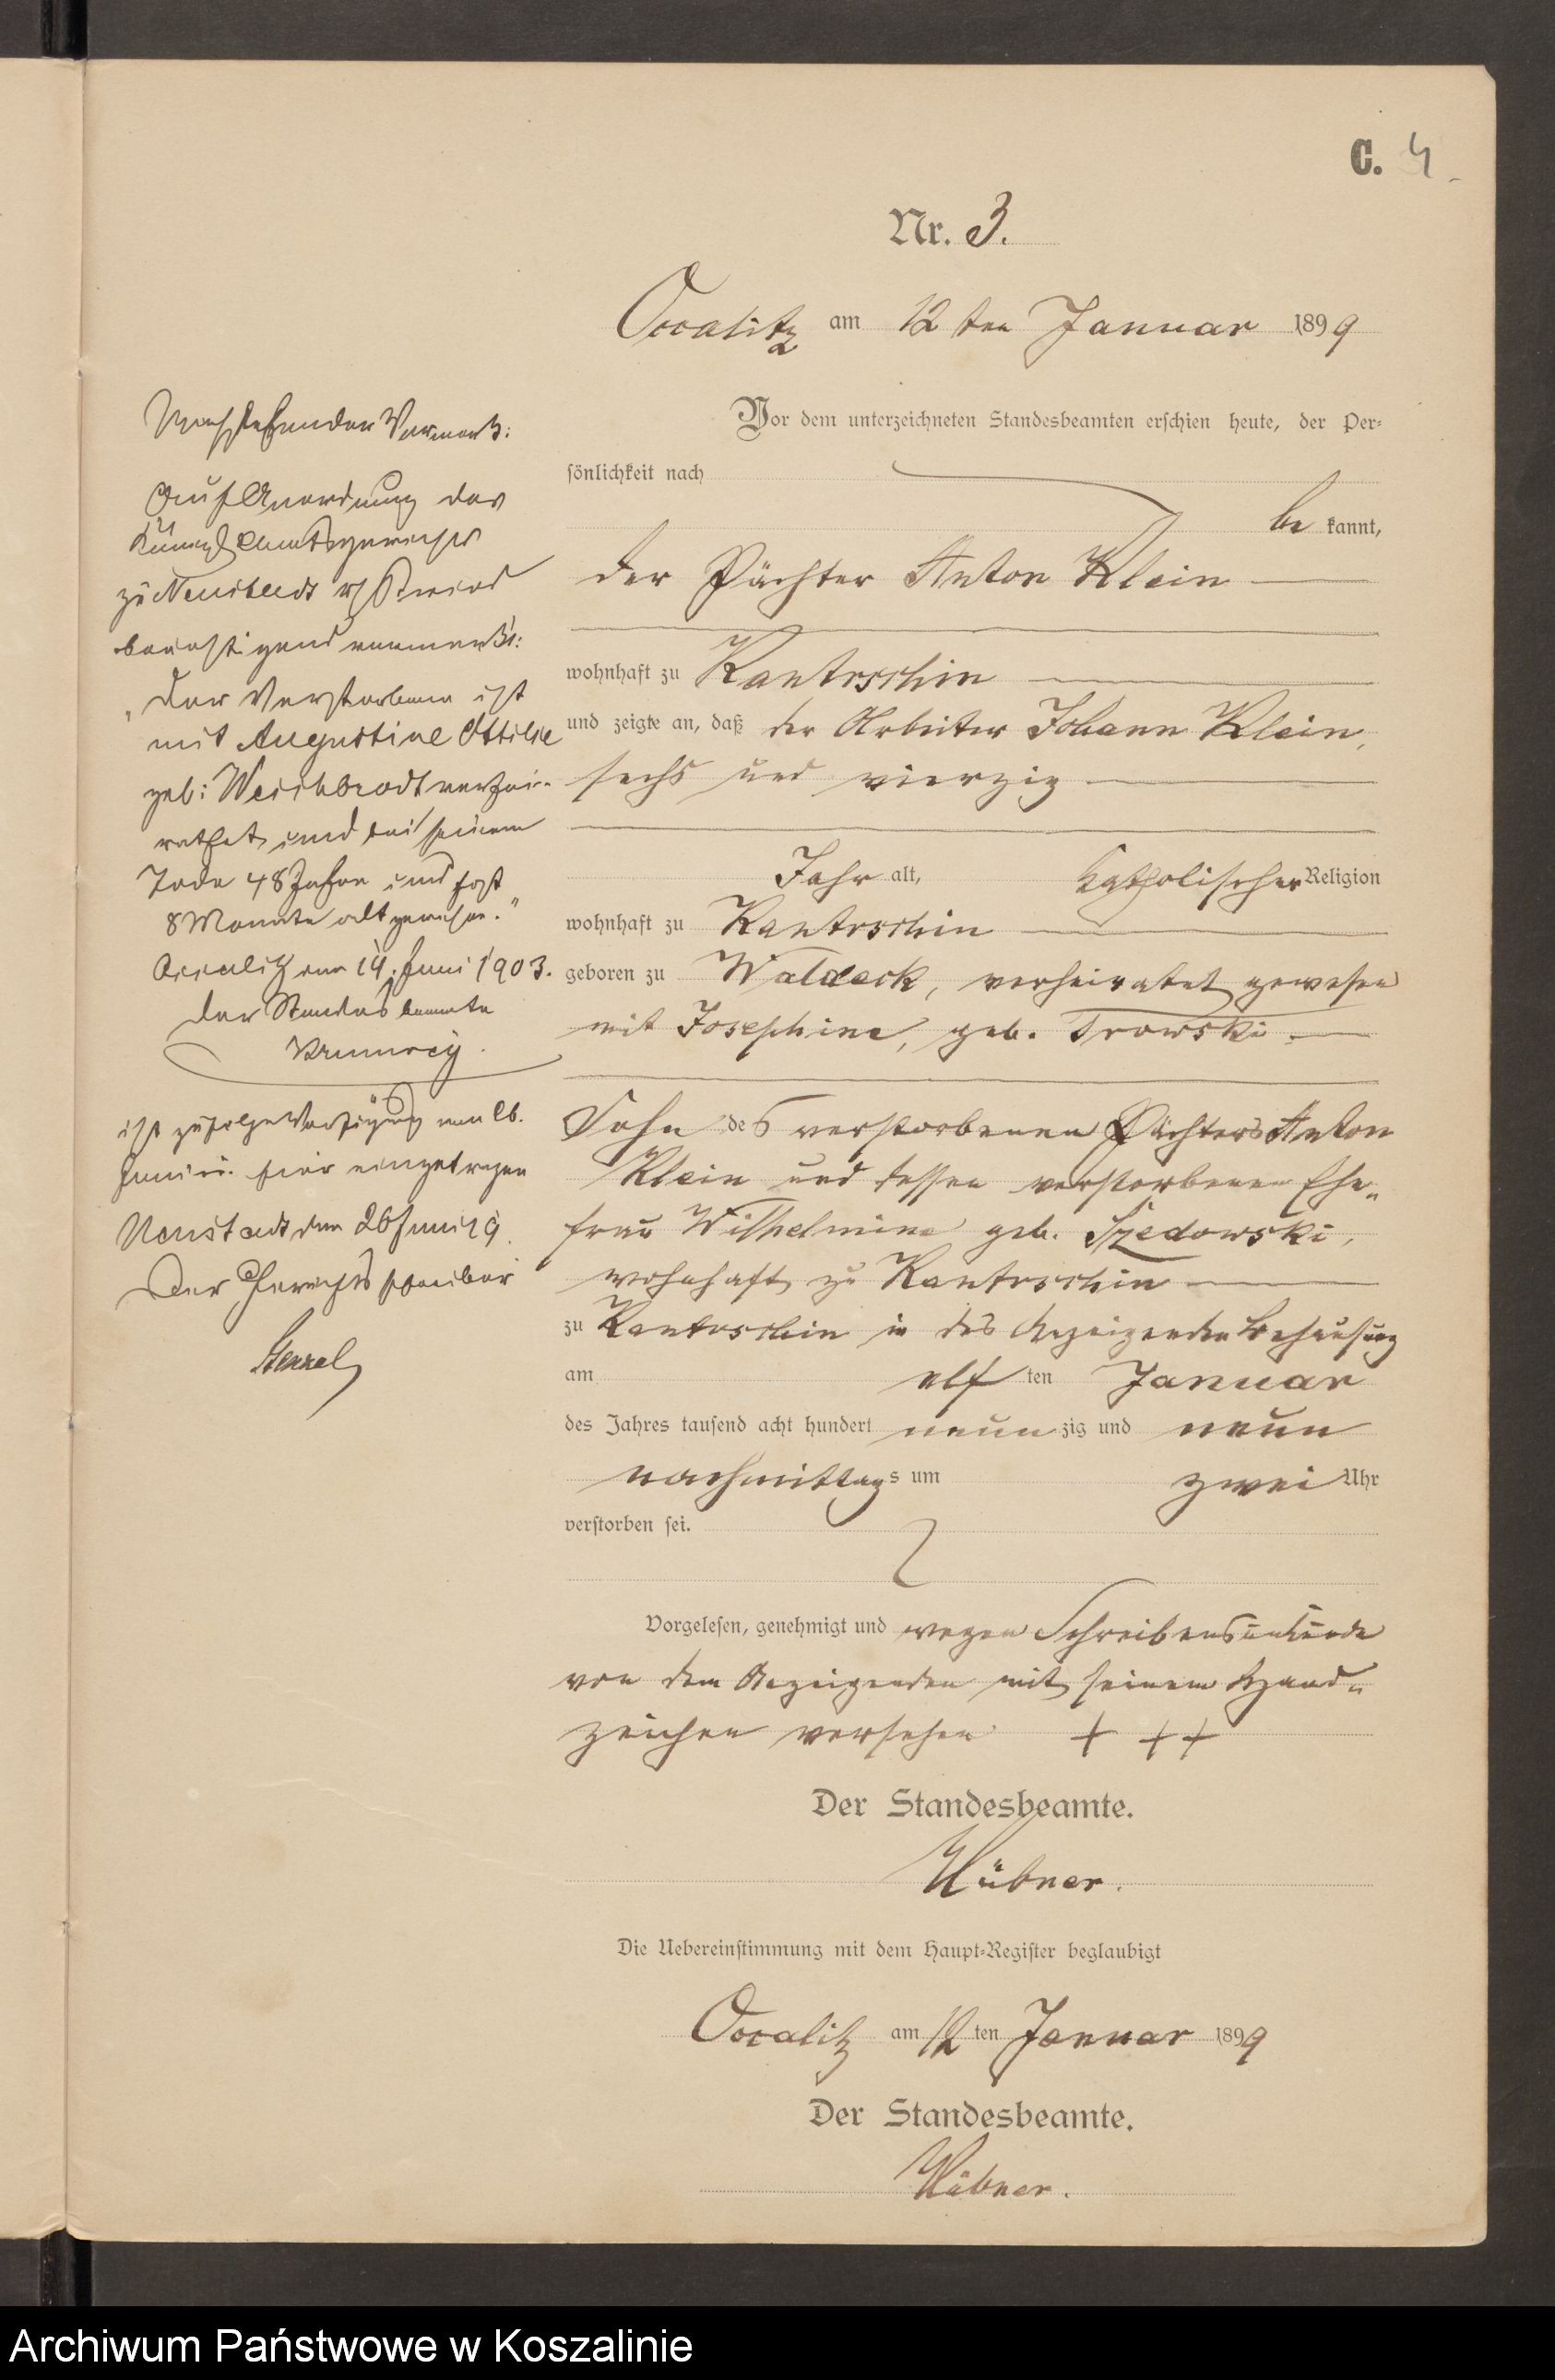 C. 4
Nr. 3.
Occalitz am 12 ten Januar 1899
Vor dem unterzeichneten Standesbeamten erschien heute, der Per=
sönlichkeit nach
be kannt,
der Pächter Anton Klein
wohnhaft zu Kantrschin
und zeigte an, daß der Arbeiter Johann Klein,
sechs und vierzig
Jahr alt, katholischer Religion
wohnhaft zu Kantrschin
geboren zu Waldeck, verheiratet gewesen
mit Josephine, geb. Trowski
Sohn des verstorbenen Pächters Anton
Klein und dessen verstorbenen Ehe=
frau Wilhelmine geb. Szedowski,
wohnhaft zu Kantrschin
zu Kantrschin in des Anzeigenden Behausung
am elf ten Januar
des Jahres tausend acht hundert neun zig und neun
nachmittags um zwei Uhr
verstorben sei.
Vorgelesen, genehmigt und wegen Schreibensunkunde
von dem Anzeigenden mit seinem Hand=
zeichen versehen + ++
Der Standesbeamte.
Hübner.
Die Uebereinstimmung mit dem Haupt=Register beglaubigt
Occalitz am 12 ten Januar 1899
Der Standesbeamte.
Hübner.
Nachstehender Vermerk:
Auf Anordnung des
Königl Amtsgerichts
zu Neustadt w/ wird
berichtigend vermerkt:
„Der Verstorbene ist
mit Augustine Ottilie
geb: Weichbrodt verhei=
rathet und bei seinem
Tode 48 Jahre und fast
8 Monate alt gewesen."
Occalitz am 14. Juni 1903.
Der Standesbeamte
ist zufolge Verfügung vom 26.
Juni hier eingetragen
Neustadt den 26 Juni 19
Der Gerichtsschreiber
Archiwum Państwowe w Koszalinie